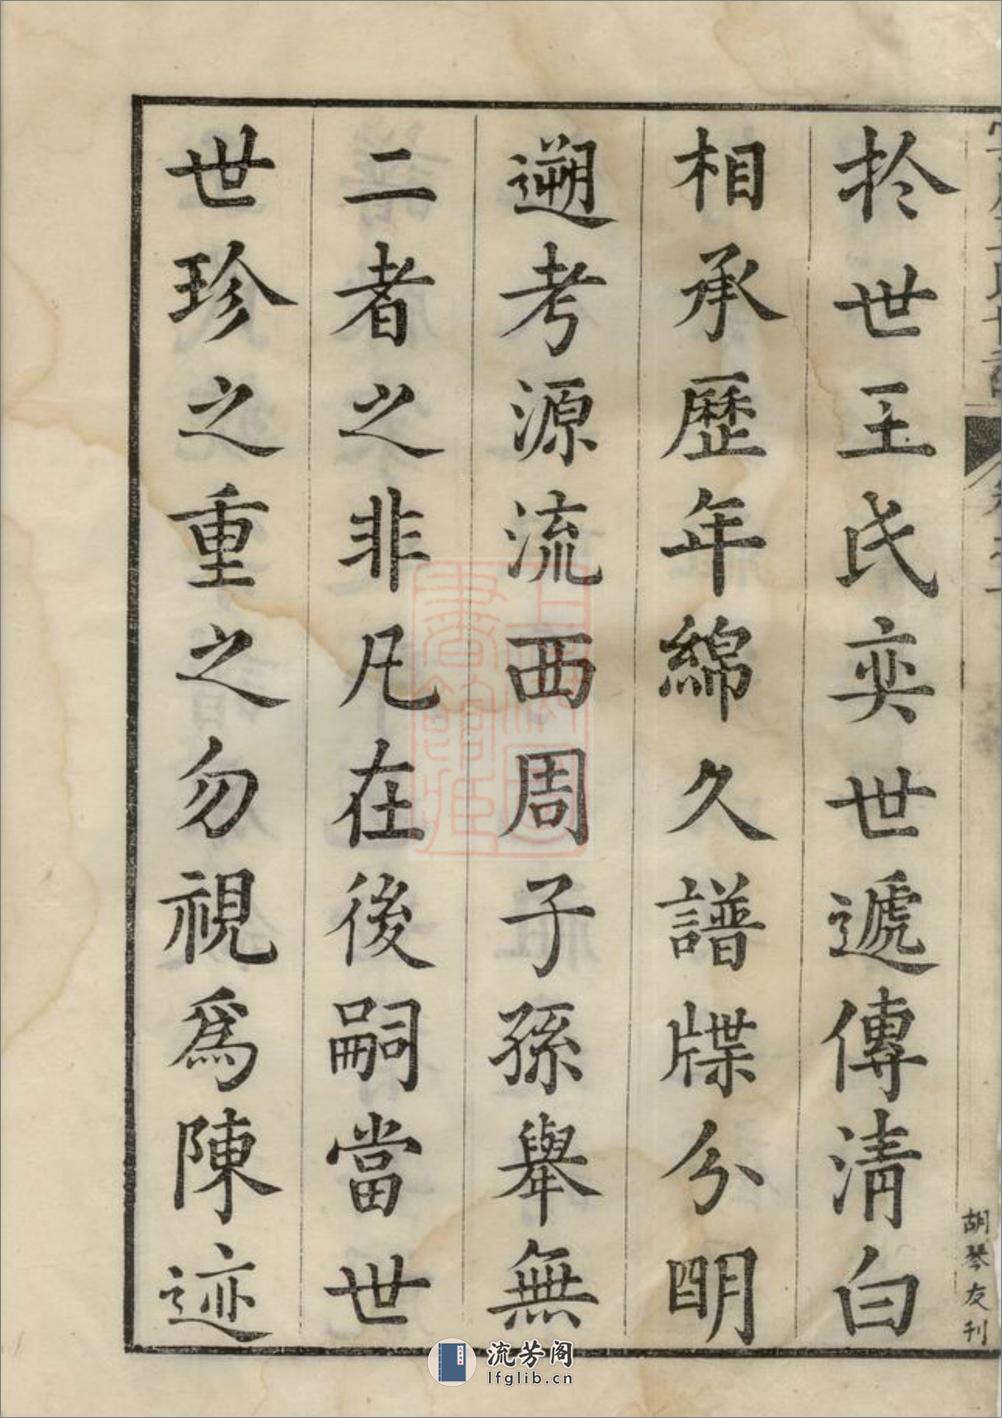 於世王氏奕世遞傳清白
相承歷年綿久譜牒分明
遡考源流西周子孫舉無
二者之非凡在後嗣當世
世珍之重之勿視爲陳迹
胡琴友刊
流芳阁
lfglib.cn